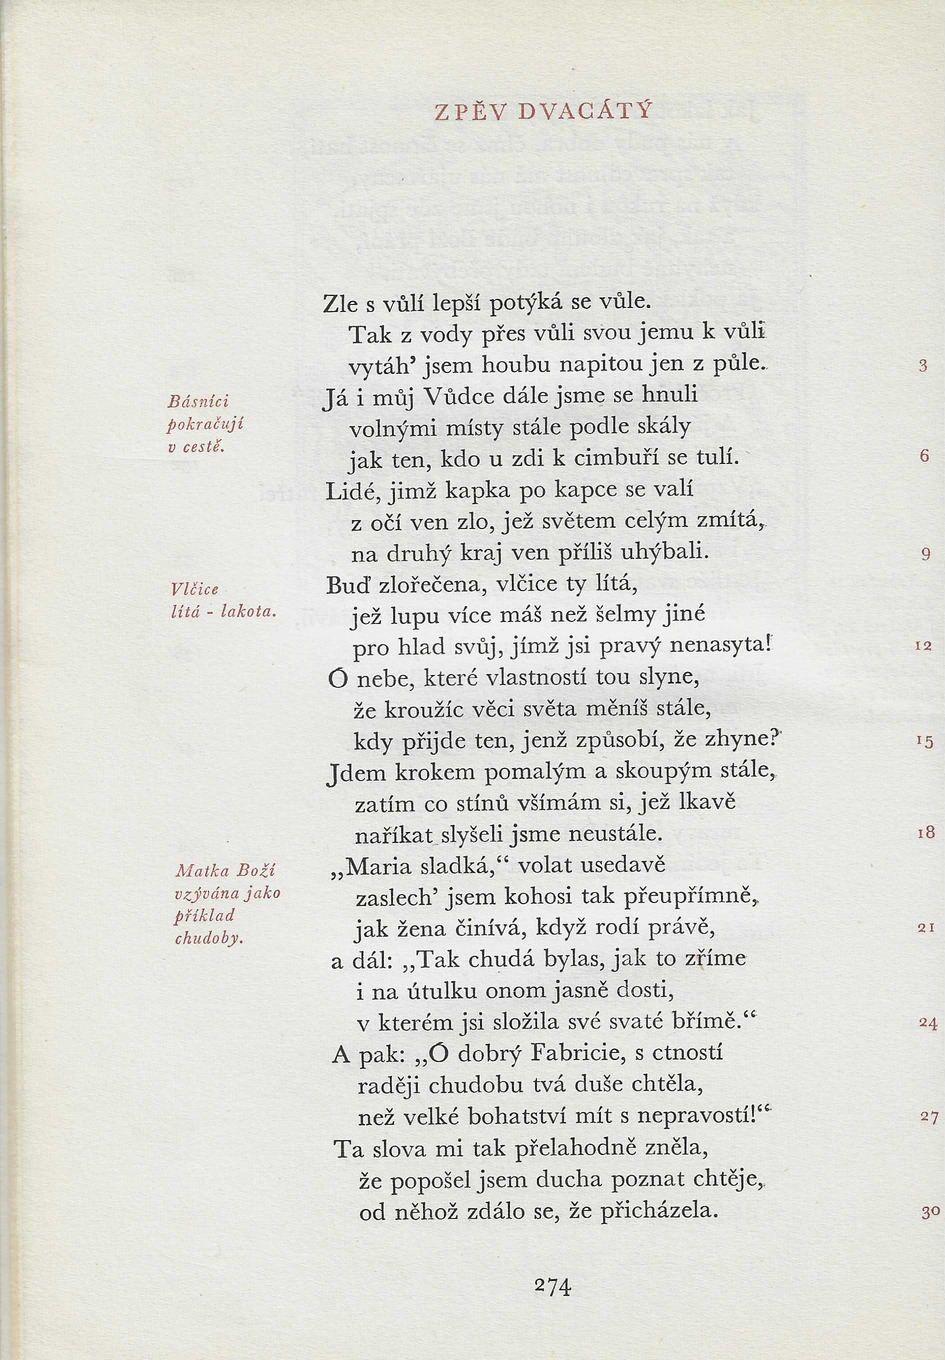 ZPĚV DVACÁTÝ
Zle s vůlí lepší potýká se vůle.
Tak z vody přes vůli svou jemu k vůli
vytáh’ jsem houbu napitou jen z půle.
3
Básníci
pokračují
v cestě.
Já i můj Vůdce dále jsme se hnuli
volnými místy stále podle skály
jak ten, kdo u zdi k cimbuří se tulí.
6
Lidé, jimž kapka po kapce se valí
z očí ven zlo, jež světem celým zmítá,
na druhý kraj ven příliš uhýbali.
9
Vlčice
lítá - lakota.
Buď zlořečena, vlčice ty lítá,
jež lupu více máš než šelmy jiné
pro hlad svůj, jímž jsi pravý nenasyta!
12
Ó nebe, které vlastností tou slyne,
že kroužíc věci světa měníš stále,
kdy přijde ten, jenž způsobí, že zhyne?
15
Jdem krokem pomalým a skoupým stále,
zatím co stínů všímám si, jež lkavě
naříkat slyšeli jsme neustále.
18
Matka Boží
vzývána jako
příklad
chudoby.
„Maria sladká,“ volat usedavě
zaslech’ jsem kohosi tak přeupřímně,
jak žena činívá, když rodí právě,
21
a dál: „Tak chudá bylas, jak to zříme
i na útulku onom jasně dosti,
v kterém jsi složila své svaté břímě.“
24
A pak: „Ó dobrý Fabricie, s ctností
raději chudobu tvá duše chtěla,
než velké bohatství mít s nepravostí!“
27
Ta slova mi tak přelahodně zněla,
že popošel jsem ducha poznat chtěje,
od něhož zdálo se, že přicházela.
30
274